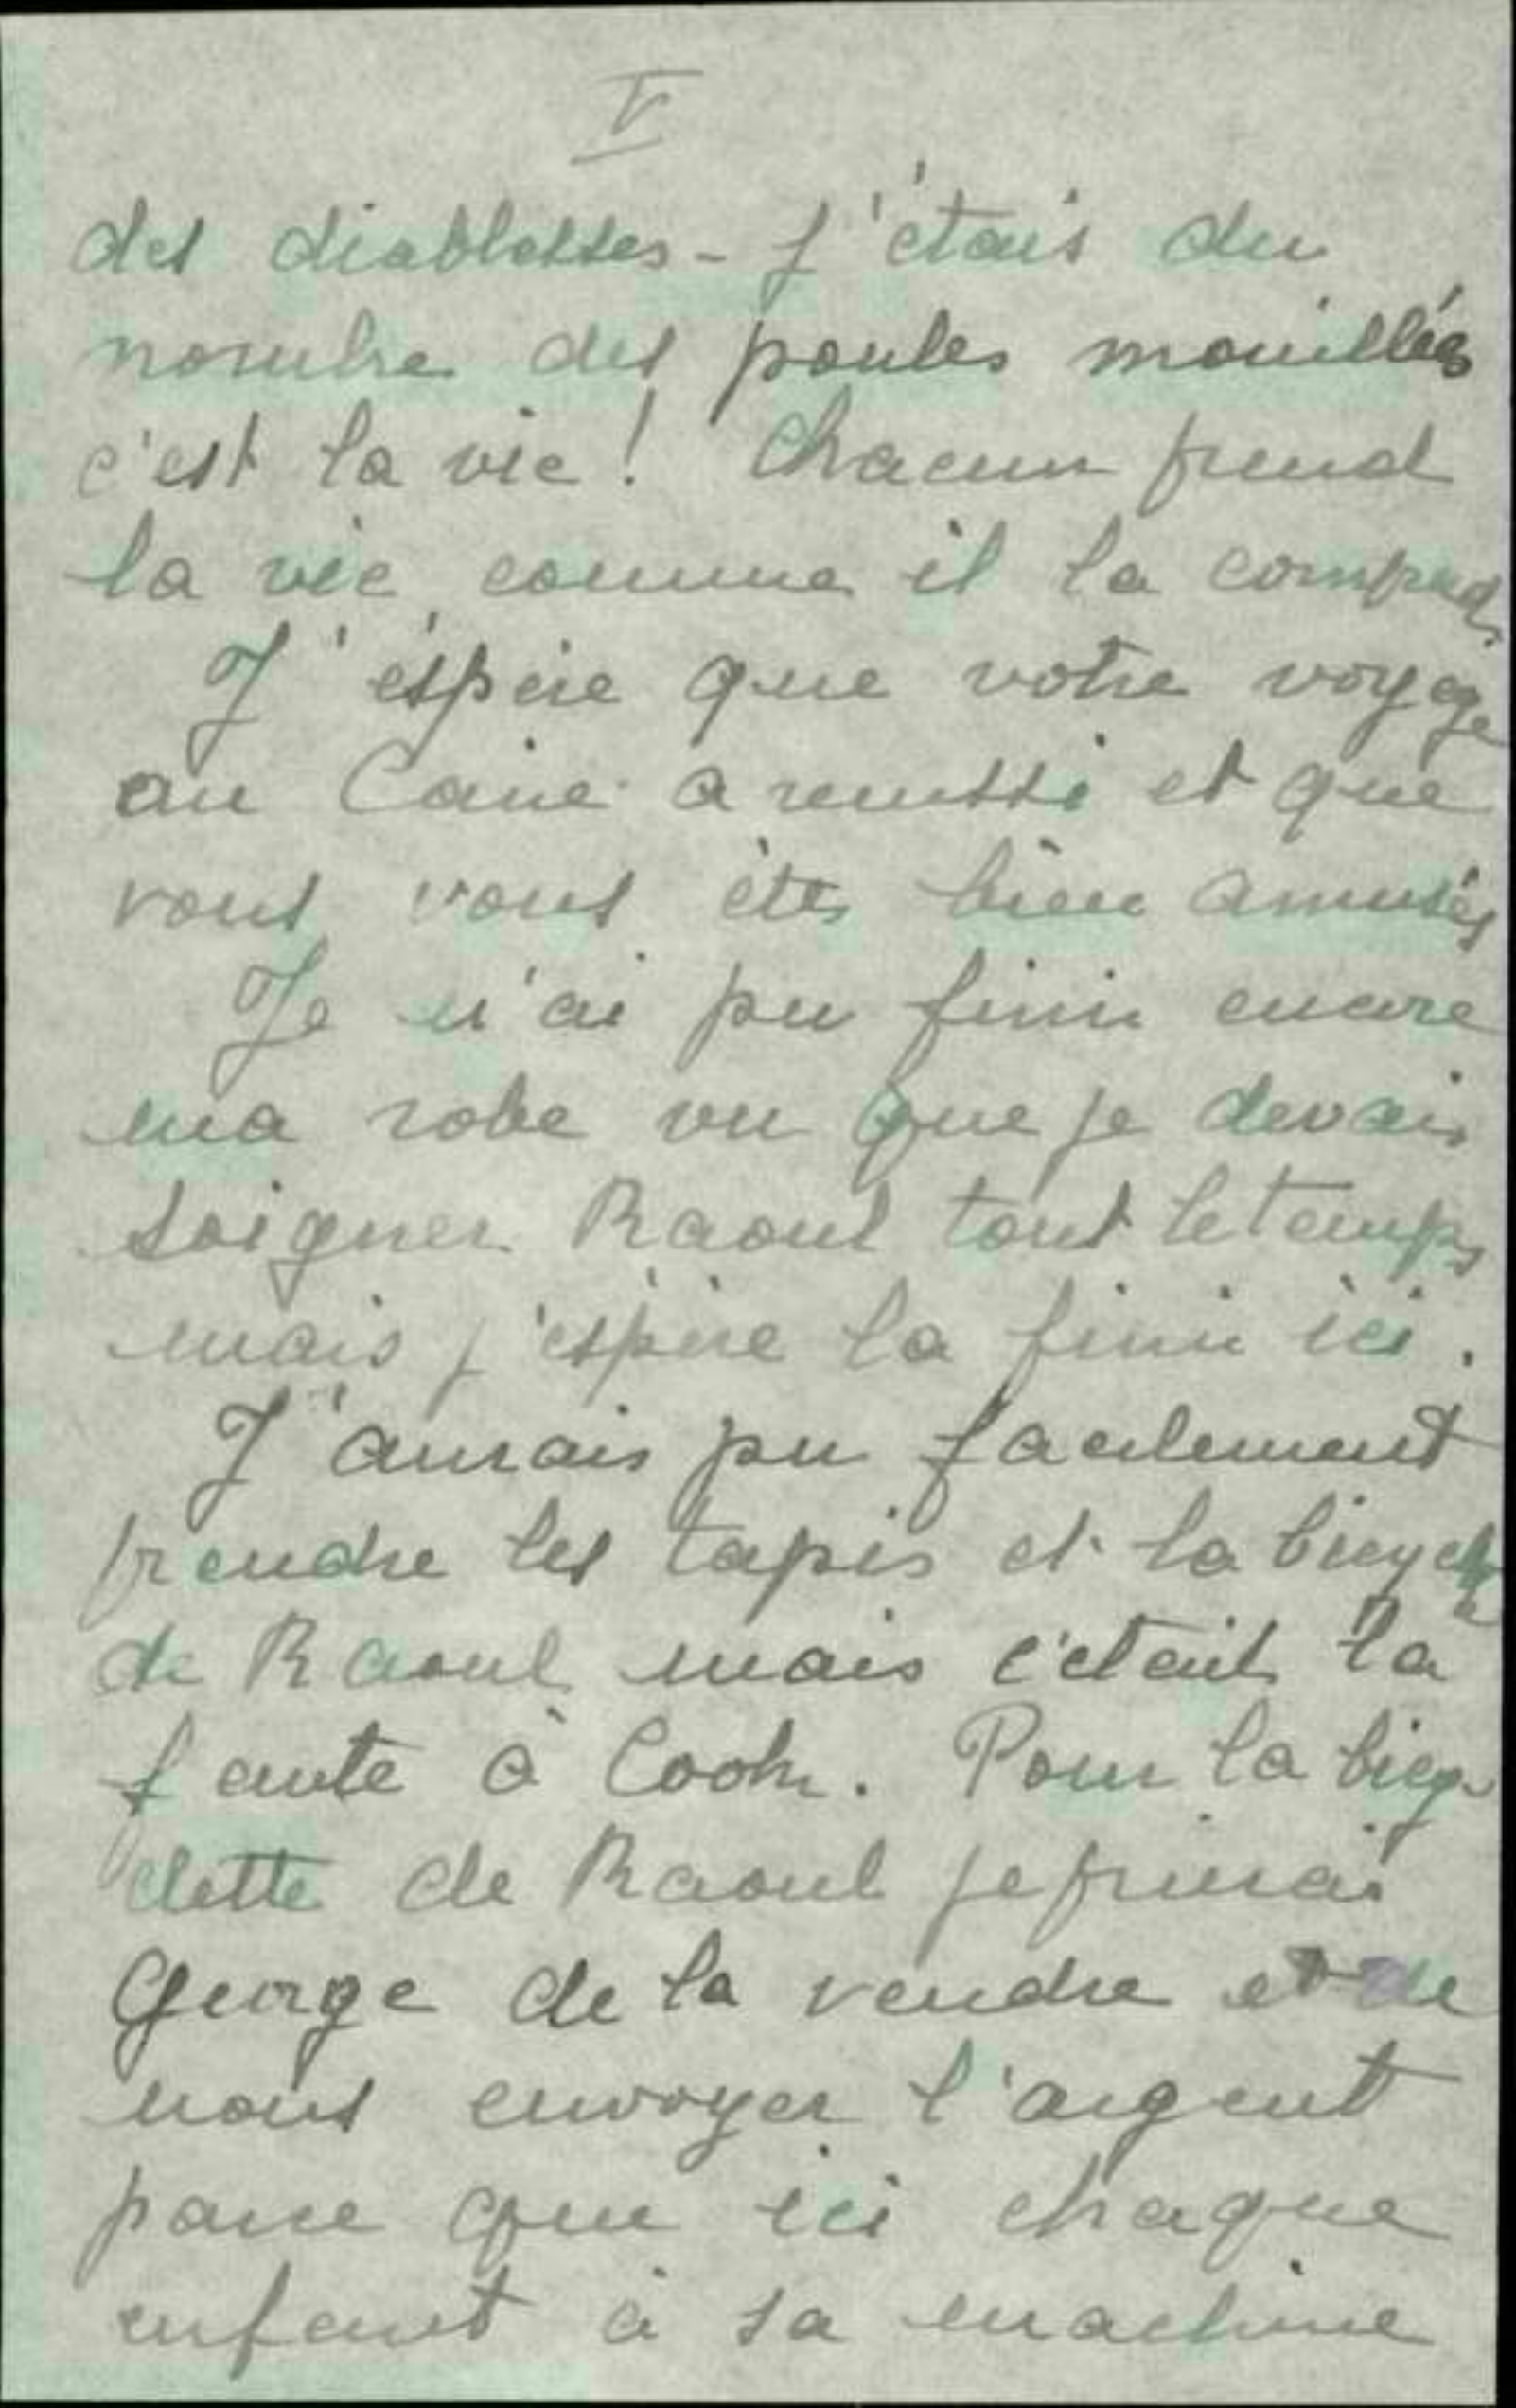 V
des diablesses - j'étais du
nombre des poules mouillées
c'est la vie ! Chacun prend
la vie comme il la comprend.
J'éspère que votre voyage
au Caire a reussi et que
vous vous êtes bien amusés
Je n'ai pu finir encore
ma robe vu que je devais
soigner Raoul tout le temps
mais j'espère la finir ici.
J'aurais pu facilement
prendre les tapis et la bicyclette
de Raoul mais c'etait la
faute à Cook. Pour la bicy-
clette de Raoul je prierai
George de la vendre et de
nous envoyer l'argent
parce que ici chaque
enfant à sa machine